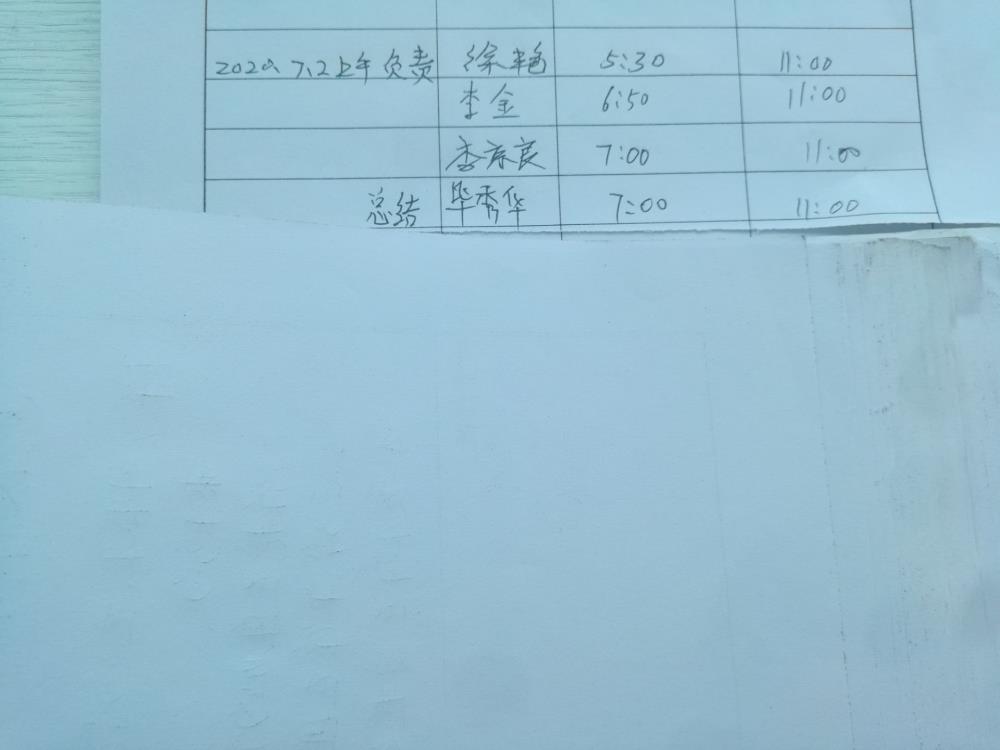 2020、7.2上午负责 徐艳 5:30 11:00
李金 6:50 11:00
李东良 7:00 11:00
总结 毕秀华 7:00 11:00